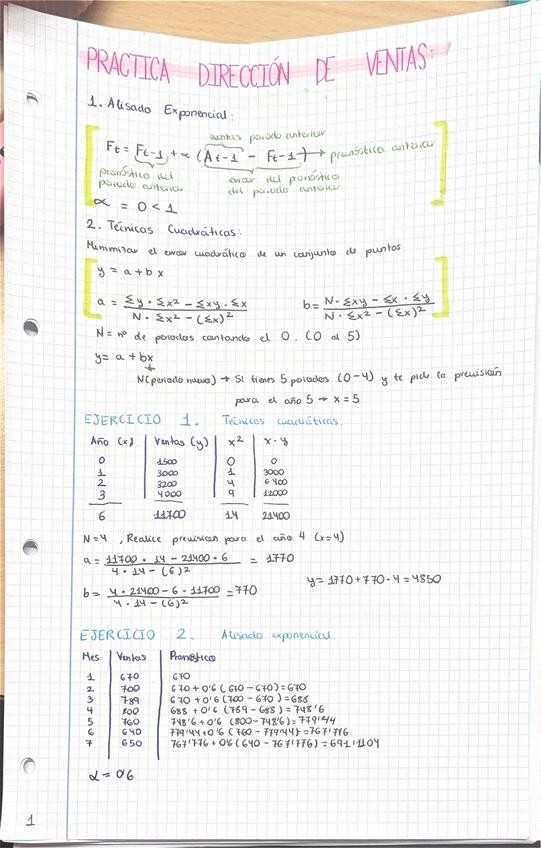 PRACTICA DIRECCIÓN DE VENTAS:
1. Alisado Exponencial:
ventas periodo anterior
Ft = Ft-1 + ∝ (At-1 - Ft-1) → pronóstico anterior
pronóstico del periodo anterior
error del pronóstico del periodo anterior
∝ = 0 < 1
2. Técnicas Cuadráticas:
Minimizar el error cuadrático de un conjunto de puntos
y = a + bx
a = (Σy · Σx² - Σxy · Σx) / (N · Σx² - (Σx)²)
b = (N · Σxy - Σx · Σy) / (N · Σx² - (Σx)²)
N = nº de periodos contando el 0. (0 al 5)
y = a + bx
N(periodo nuevo) → Si tienes 5 periodos (0-4) y te pide la previsión
para el año 5 → x = 5
EJERCICIO 1. Técnicas cuadráticas.
Año (x) Ventas (y) x² x · y
0 1500 0 0
1 3000 1 3000
2 3200 4 6400
3 4000 9 12000
6 11700 14 21400
N=4, Realice previsión para el año 4 (x=4)
a = (11700 · 14 - 21400 · 6) / (4 · 14 - (6)²) = 1770
b = (4 · 21400 - 6 · 11700) / (4 · 14 - (6)²) = 770
y = 1770 + 770 · 4 = 4850
EJERCICIO 2. Alisado exponencial.
Mes Ventas Pronóstico
1 670 670
2 700 670 + 0'6 (670 - 670) = 670
3 789 670 + 0'6 (700 - 670) = 688
4 800 688 + 0'6 (789 - 688) = 748'6
5 760 748'6 + 0'6 (800 - 748'6) = 779'44
6 640 779'44 + 0'6 (760 - 779'44) = 767'776
7 650 767'776 + 0'6 (640 - 767'776) = 691'1104
∝ = 0'6
1